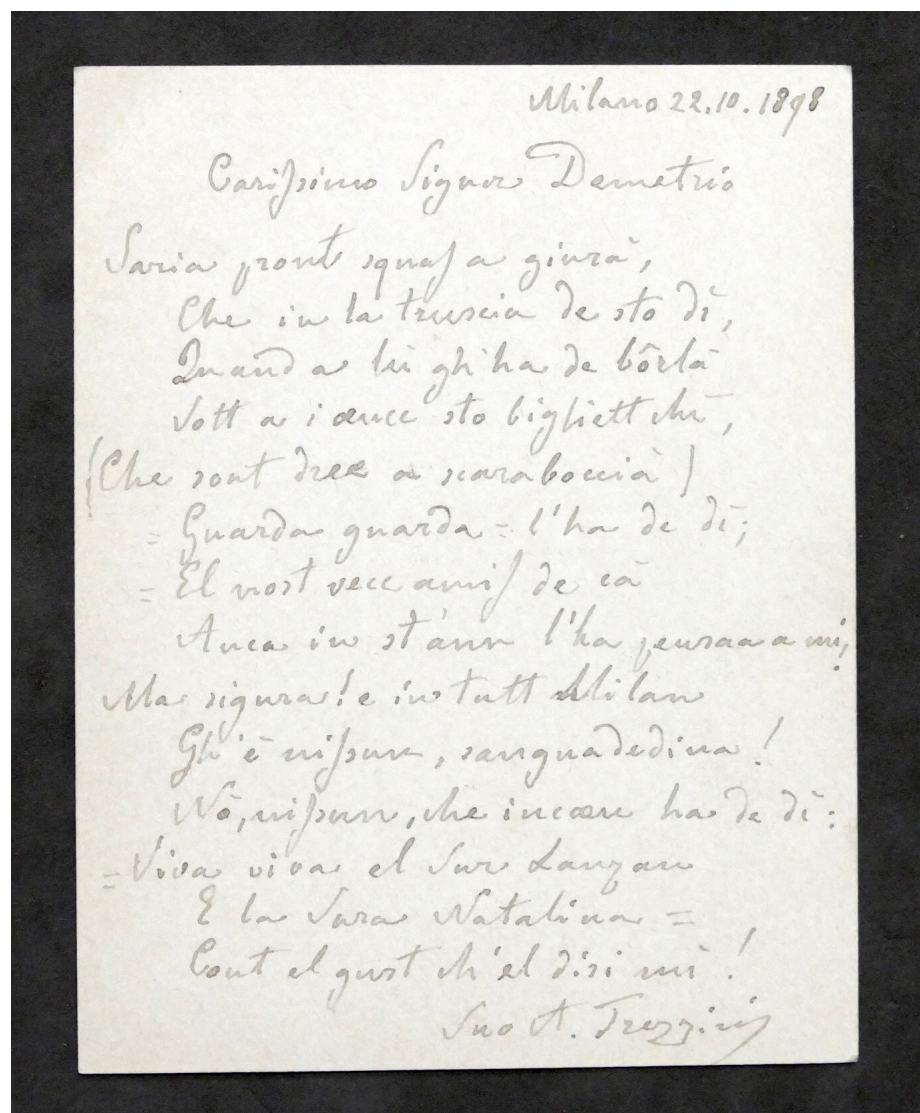 Milano 22.10.1898
Carissimo Signor Demetrio
Saria pront squas a giurà,
Che in la truscia de sto dì,
Quand a lù gh'ha de bôrlà
Sott a i œucc sto bigliett chì,
(Che sont dree a scaraboccià)
= Guarda guarda = l'ha de dì;
= El nost vecc amis de cà
Anca in st'ann l'ha pensaa a mì!
Ma sigura! e in tutt Milan
Gh'è nissun, sanguadedina!
Nò, nissun, che incœu ha de dì:
= Viva viva el Sur Lanzan
E la Sura Natalina =
Cont el gust ch'el disi mì!
Suo A. Trezzini